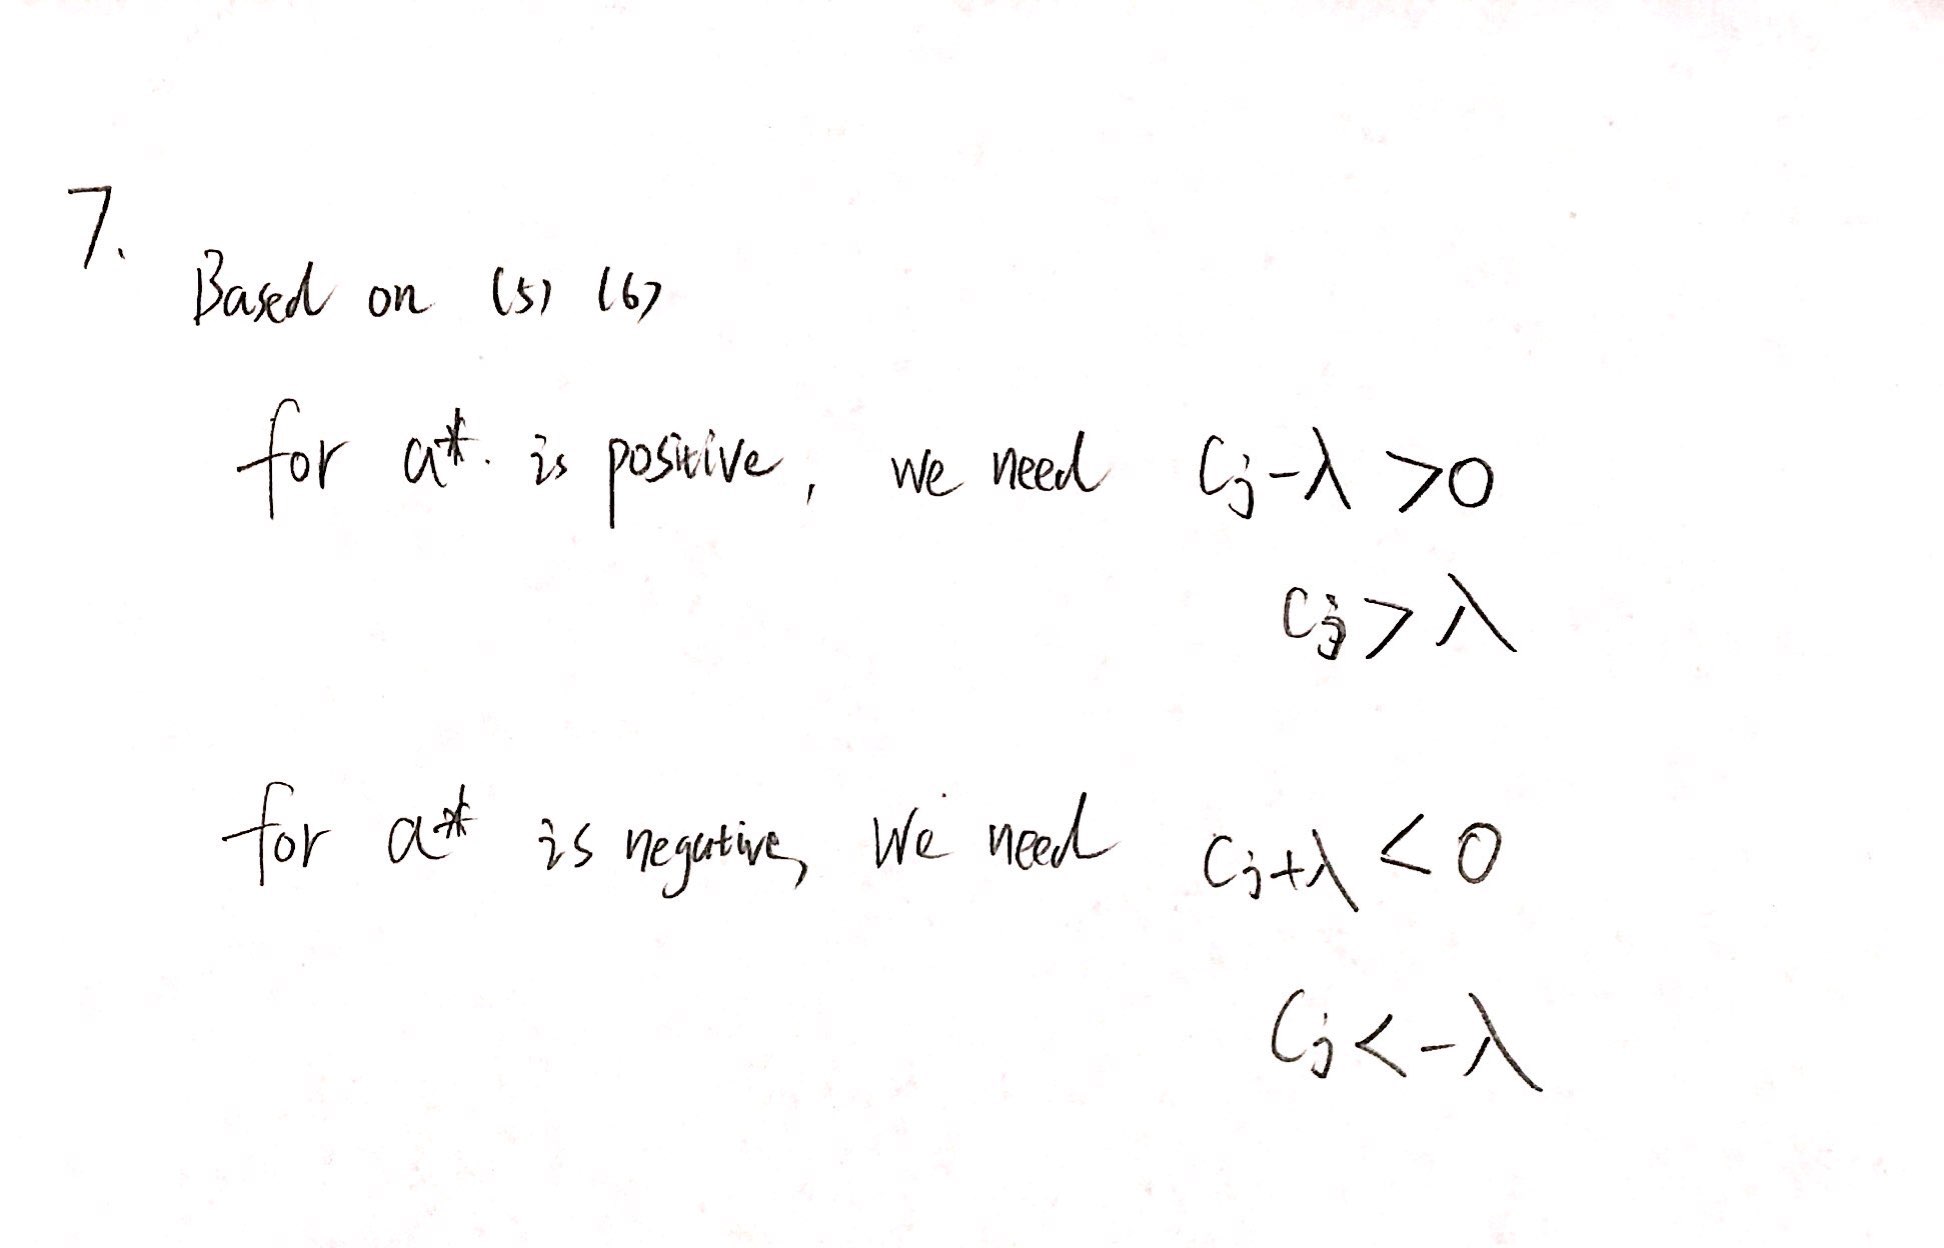 7.
Based on (5) (6)
for a*. is positive, we need Cj-λ >0
Cj > λ
for a* is negative, We need Cj+λ < 0
Cj < -λ